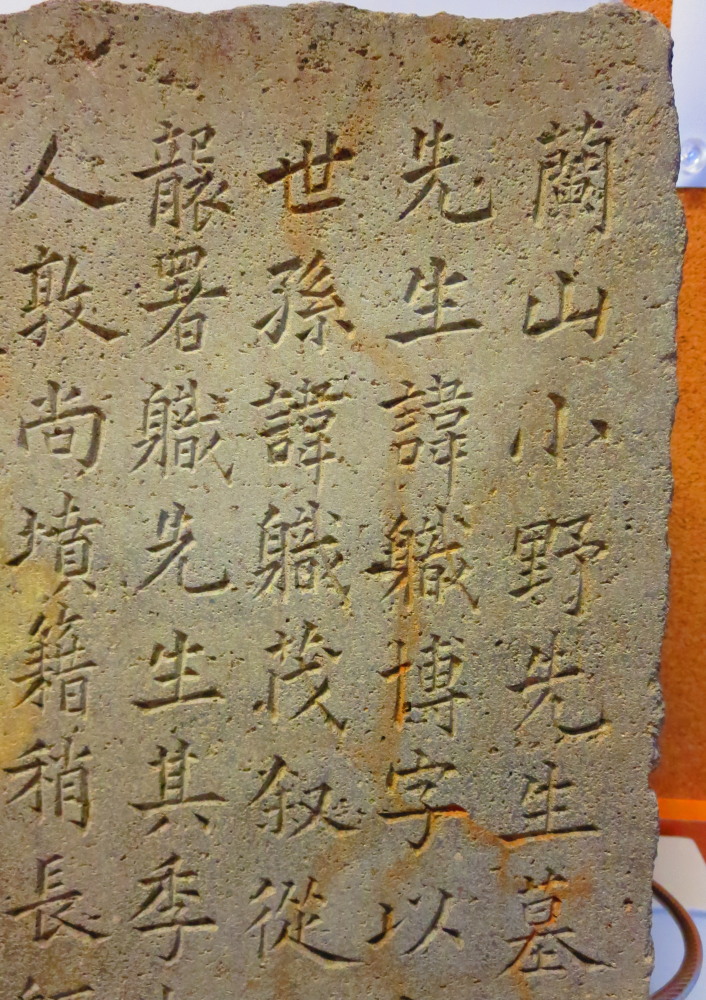 蘭山小野先生墓
先生諱職博字以
世孫諱職茂叙從
襲署職先生其季
人敦尚墳籍稍長